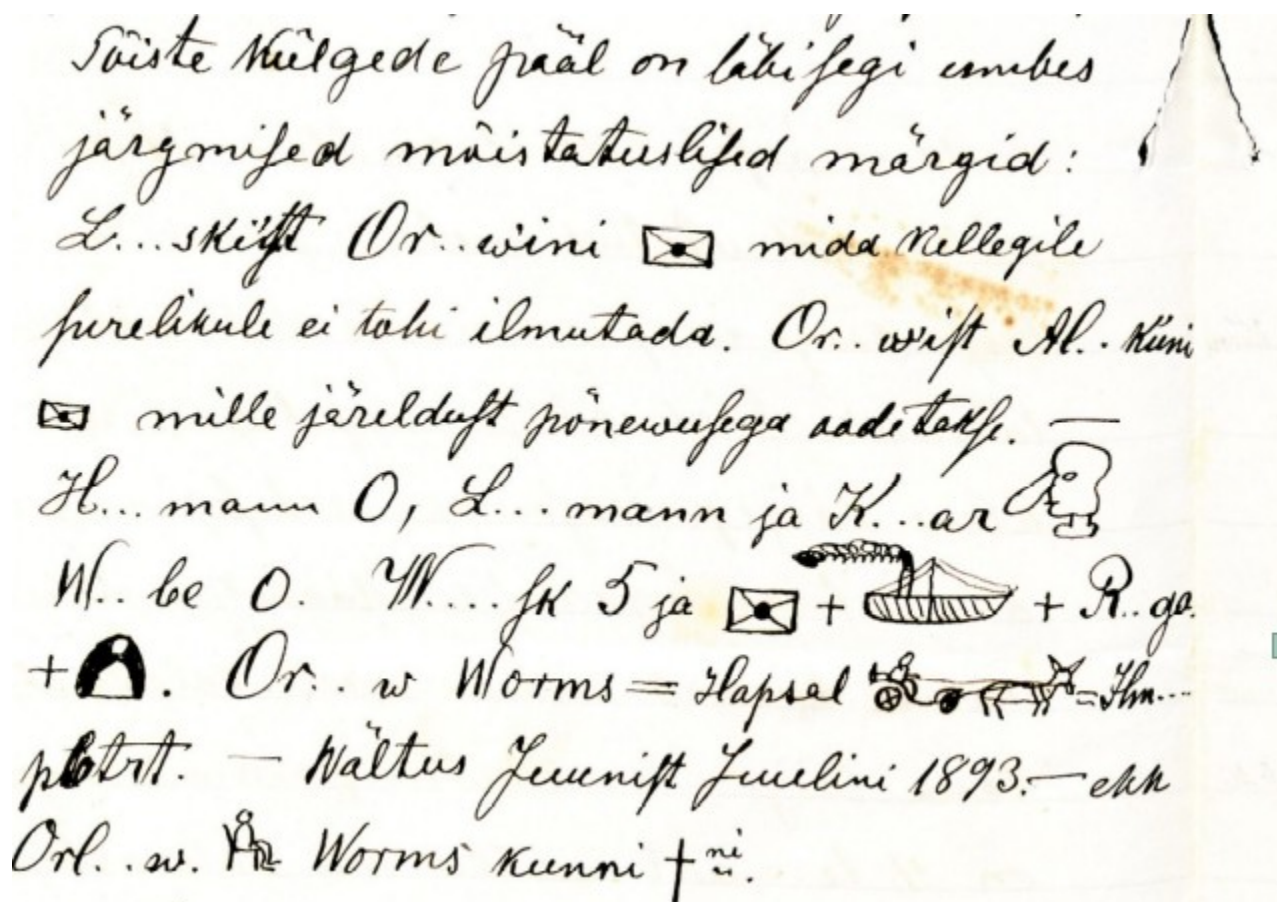 Tõiste külgede pääl on läbisegi umbes
järgmised mõistatuslised märgid:
L...skist Or..wini midd kellegile
surelikule ei tohi ilmutada. Or.. wist Al.. küni
mille järeldust põnewusega oodetakse. —
H... mann O, L... mann ja K...ar
W.. be O. W.... sk 5 ja + + R..ga.
+ . Or... w Worms = Hapsal =Hm....
— Wältus Juunist Juulini 1893. — ehk
Orl...w. Worms kunni † ni.